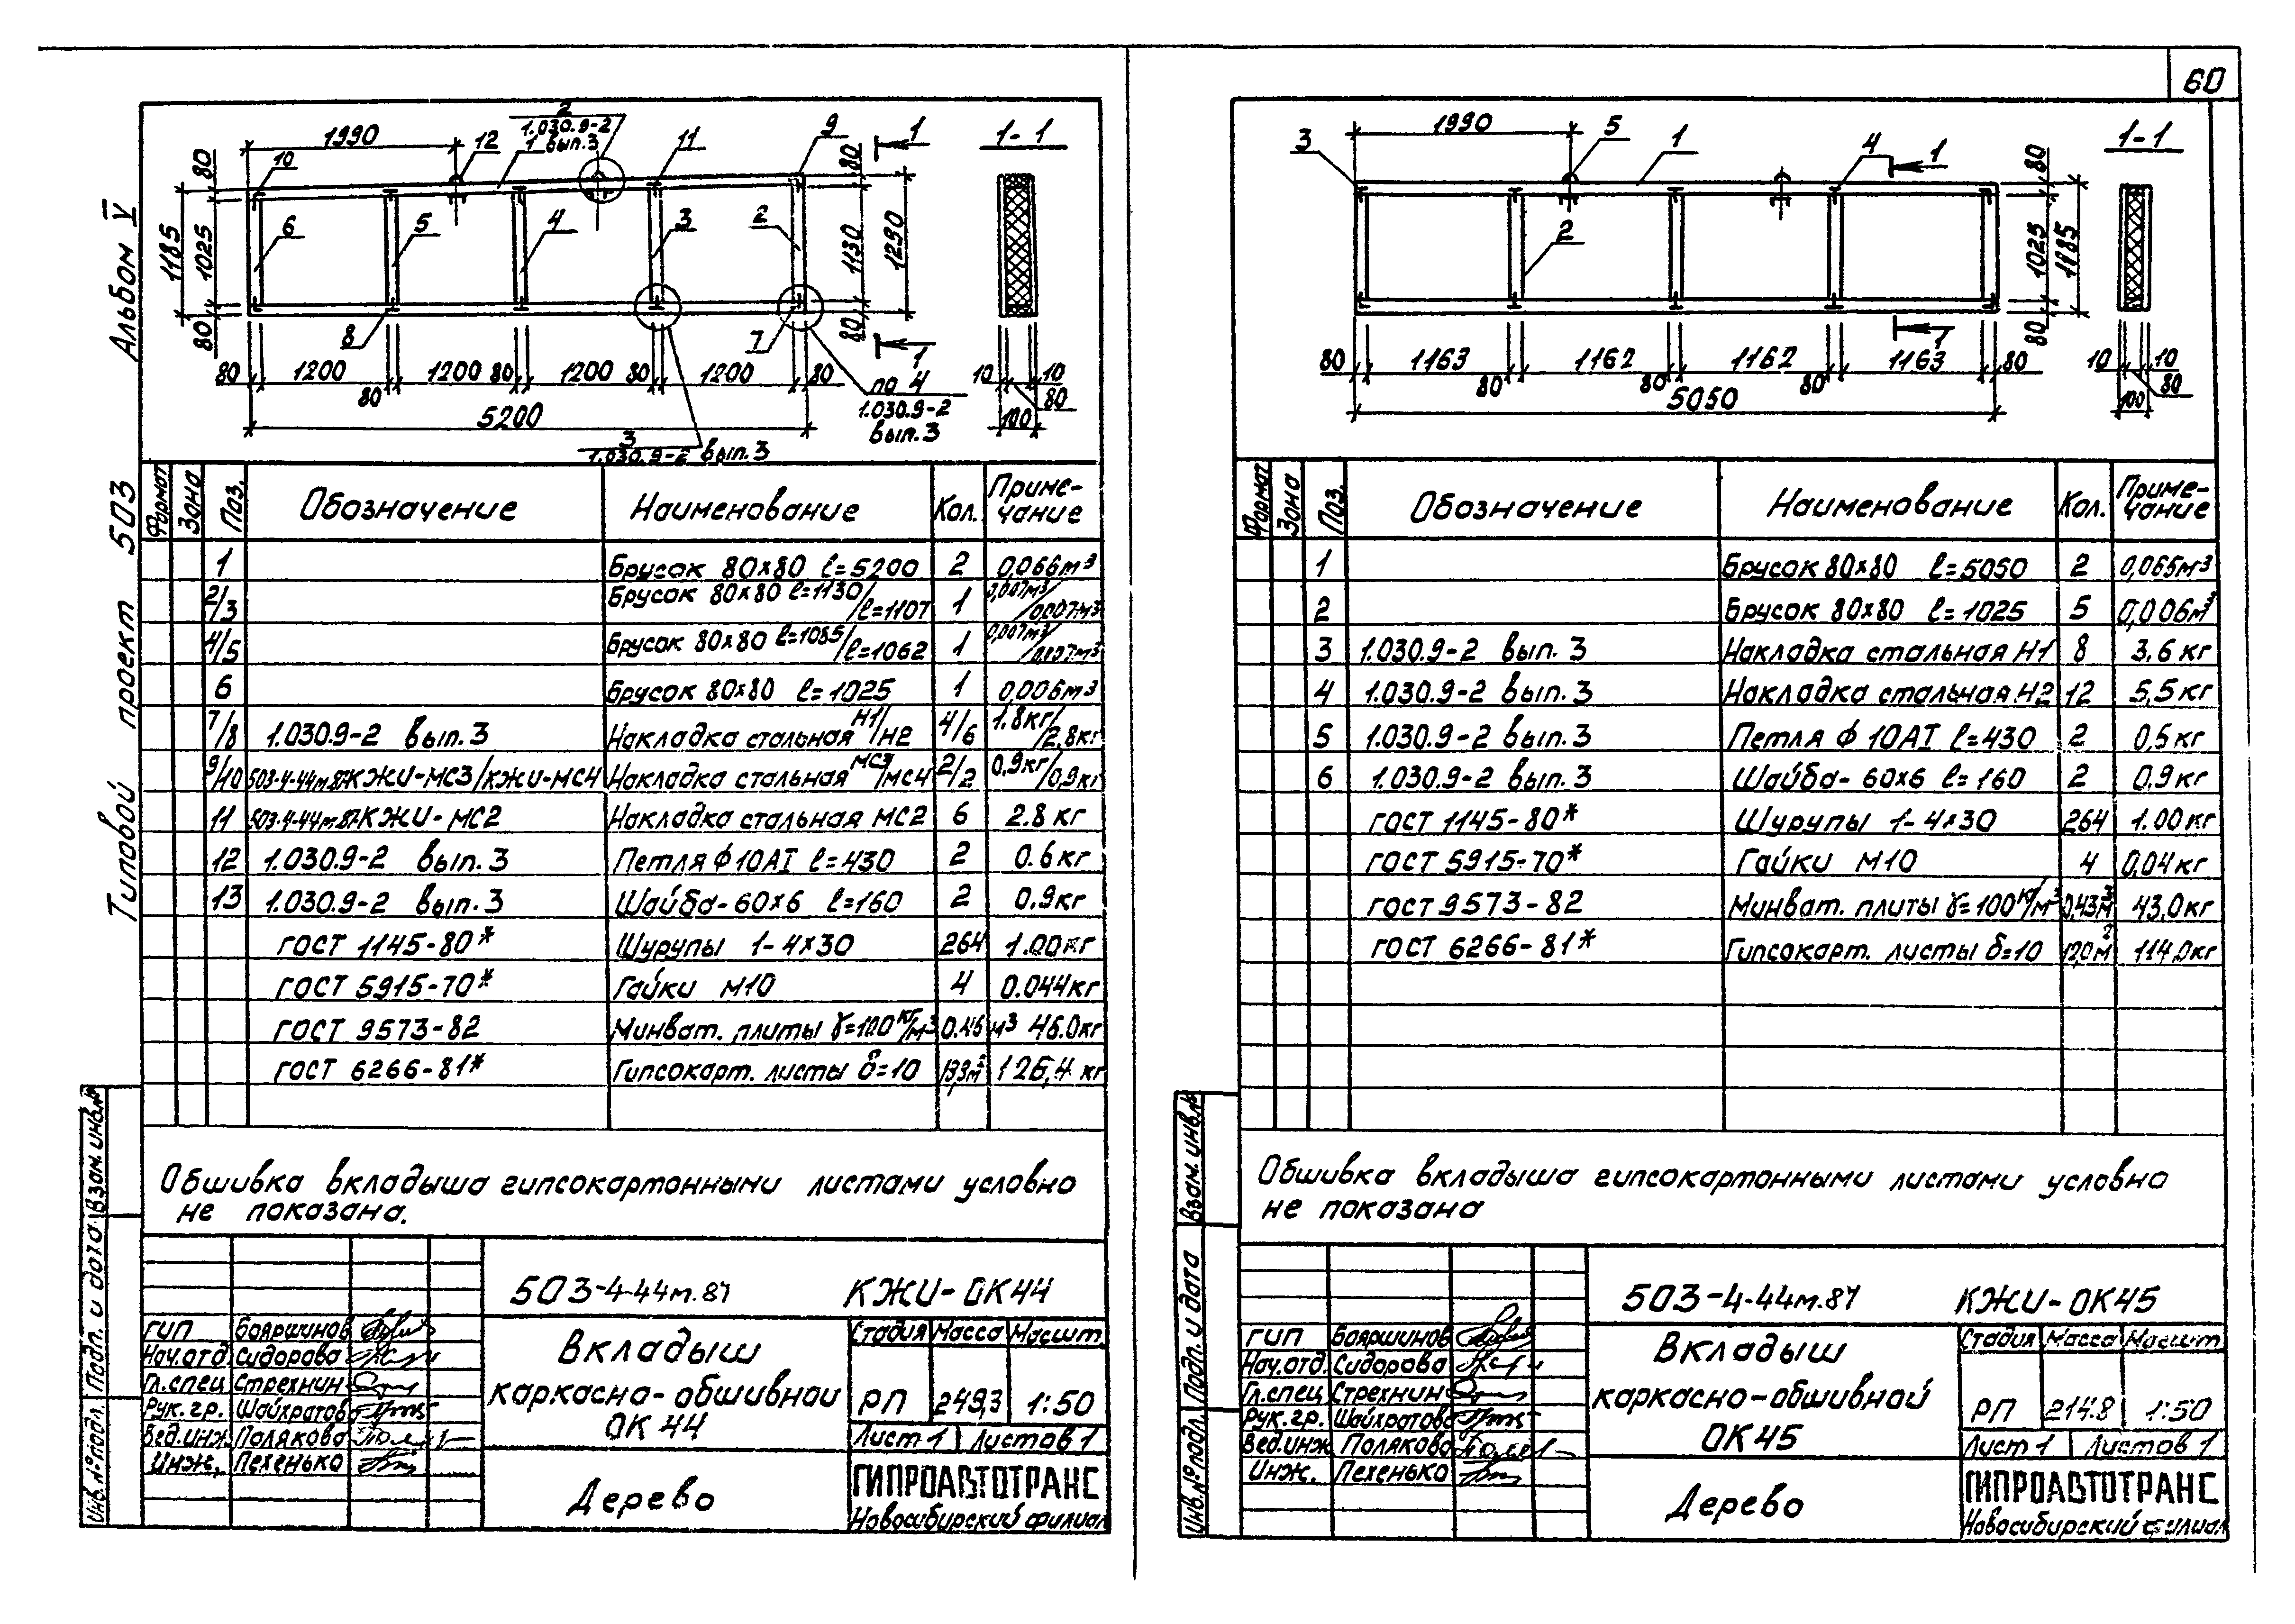 60
Альбом V
Типовой проект 503
1990
12
2
1.030.9-2
1 вып.3
11
9
1
1-1
80
10
80
6
5
4
3
2
1185
1025
1130
1290
80
8
7
80
1
80 1200 80 1200 80 1200 80 1200 80
5200
по 4
1.030.9-2
вып.3
3
1.030.9-2 вып.3
10 10
80
100
Формат Зона Поз. Обозначение Наименование Кол. Примечание
1 Брусок 80×80 ℓ=5200 2 0,066м³
2/3 Брусок 80×80 ℓ=1130/ℓ=1107 1 0,007м³/0,007м³
4/5 Брусок 80×80 ℓ=1085/ℓ=1062 1 0,007м³/0,007м³
6 Брусок 80×80 ℓ=1025 1 0,006м³
7/8 1.030.9-2 вып.3 Накладка стальная Н1/Н2 4/6 1.8кг/2,8кг
9/10 503-4-44м.87КЖИ-МС3/КЖИ-МС4 Накладка стальная МС3/МС4 2/2 0,9кг/0,9кг
11 503-4-44м.87КЖИ-МС2 Накладка стальная МС2 6 2.8кг
12 1.030.9-2 вып.3 Петля ф10АI ℓ=430 2 0.6кг
13 1.030.9-2 вып.3 Шайба-60×6 ℓ=160 2 0,9кг
ГОСТ 1145-80* Шурупы 1-4×30 264 1.00кг
ГОСТ 5915-70* Гайки М10 4 0.044кг
ГОСТ 9573-82 Минват. плиты γ=100кг/м³ 0.46м³ 46.0кг
ГОСТ 6266-81* Гипсокарт. листы δ=10 13,3м² 126,4кг
Обшивка вкладыша гипсокартонными листами условно
не показана.
503-4-44м.87 КЖИ-ОК44
ГИП Бояршинов
Нач.отд. Сидорова
Гл.спец Стрехнин
Рук.гр. Шайхратова
Вед.инж Полякова
Инж. Пехенько
Вкладыш
каркасно-обшивной
ОК 44
Стадия Масса Масшт.
РП 249,3 1:50
Лист 1 Листов 1
Дерево
ГИПРОАВТОТРАНС
Новосибирский филиал
Инв.№подл. Подп. и дата Взам.инв.№
1990
3
5
1
4
1
1-1
80
2
1025
1185
80
1
80 1163 80 1162 80 1162 80 1163 80
5050
10 10
80
100
Формат Зона Поз. Обозначение Наименование Кол. Примечание
1 Брусок 80×80 ℓ=5050 2 0,065м³
2 Брусок 80×80 ℓ=1025 5 0,006м³
3 1.030.9-2 вып.3 Накладка стальная Н1 8 3,6кг
4 1.030.9-2 вып.3 Накладка стальная Н2 12 5,5кг
5 1.030.9-2 вып.3 Петля ф10АI ℓ=430 2 0,5кг
6 1.030.9-2 вып.3 Шайба-60×6 ℓ=160 2 0,9кг
ГОСТ 1145-80* Шурупы 1-4×30 264 1.00кг
ГОСТ 5915-70* Гайки М10 4 0,04кг
ГОСТ 9573-82 Минват. плиты γ=100кг/м³ 0,43м³ 43,0кг
ГОСТ 6266-81* Гипсокарт. листы δ=10 12,0м² 114,0кг
Обшивка вкладыша гипсокартонными листами условно
не показана
503-4-44м.87 КЖИ-ОК45
ГИП Бояршинов
Нач.отд. Сидорова
Гл.спец Стрехнин
Рук.гр. Шайхратова
Вед.инж Полякова
Инж. Пехенько
Вкладыш
каркасно-обшивной
ОК45
Стадия Масса Масшт.
РП 214.8 1:50
Лист 1 Листов 1
Дерево
ГИПРОАВТОТРАНС
Новосибирский филиал
Инв.№подл. Подп. и дата Взам.инв.№